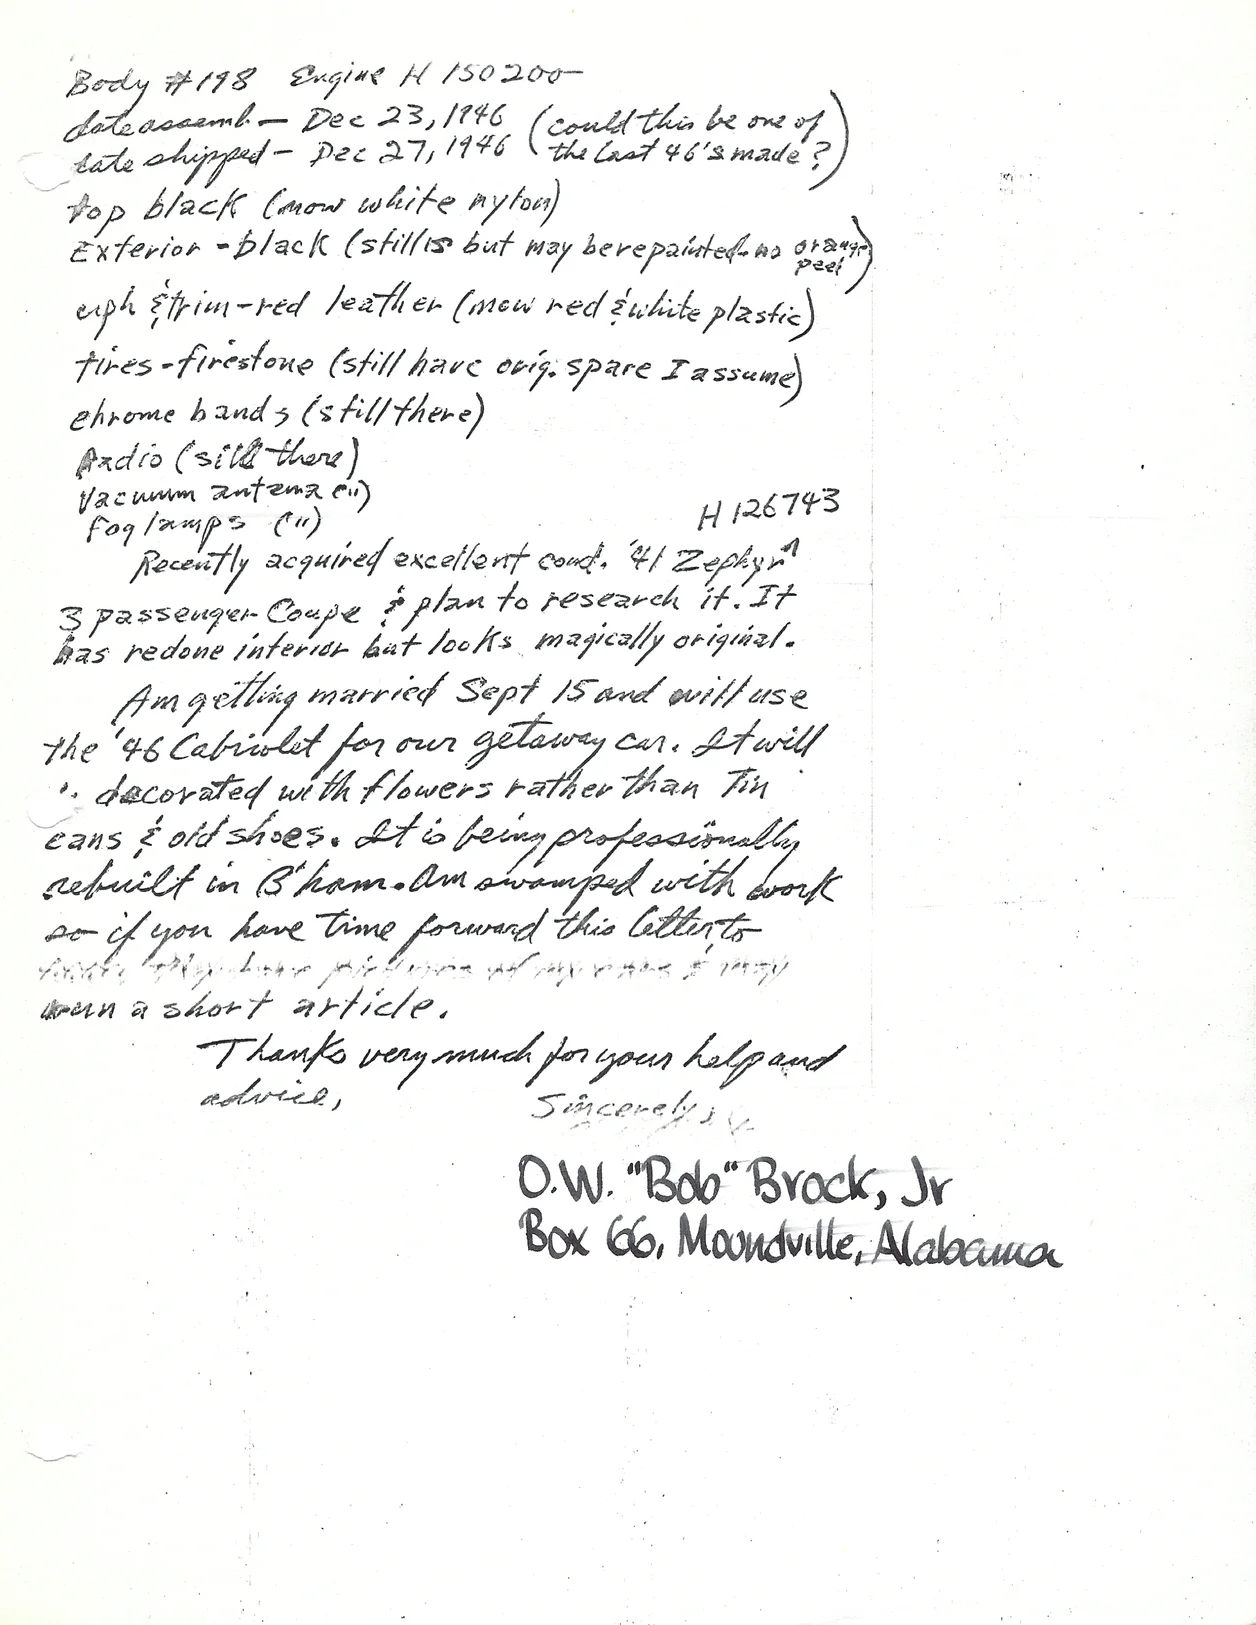 Body #198 Engine H 150200
date assemb. — Dec 23, 1946 (could this be one of
date shipped — Dec 27, 1946 the last 46's made?)
top black (now white nylon)
Exterior - black (still is but may be repainted - no orange peel)
uph & trim - red leather (now red & white plastic)
tires - firestone (still have orig. spare I assume)
chrome bands (still there)
Radio (still there)
Vacuum antema (")
fog lamps (")
H 126743
Recently acquired excellent cond. '41 Zephyr ^
3 passenger Coupe & plan to research it. It
has redone interior but looks magically original.
Am getting married Sept 15 and will use
the '46 Cabriolet for our getaway car. It will
decorated with flowers rather than Tin
cans & old shoes. It is being professionally
rebuilt in B'ham. Am swamped with work
so if you have time forward this letter to
have pictures of my & may
run a short article.
Thanks very much for your help and
advice,
Sincerely,
O.W. "Bob" Brock, Jr
Box 66, Moundville, Alabama